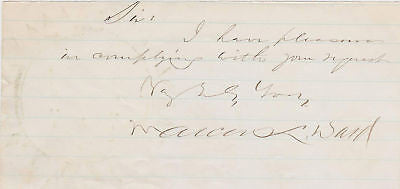 Sir:
I have pleasure
in complying with your request
Very Truly Yours,
Marcus L. Ward